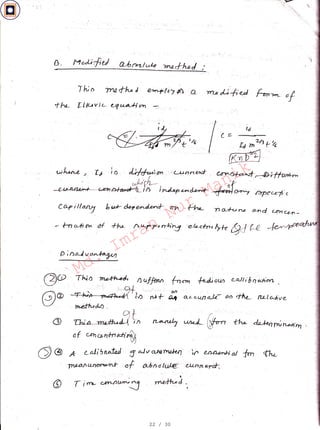 B. Modified absolute method :
This method employs a modified form of
the Ilkovic equation -
C = id / Id m^2/3 t^1/6
[K n D^1/2]
where, Id is diffusion current constant, Diffusion
current constant is independent of specific
capillary but dependent on the nature and concen-
- tration of the supporting electrolyte
Disadvantages
① This method suffers from tedious calibration.
② This method is not as accurate as the relative
methods.
③ This method is rarely used for the determination
of concentration
④ A calibrated galvanometer is essential for the
measurement of absolute current.
⑤ Time consuming method.
Md. Imran Nur Manik
22 / 30